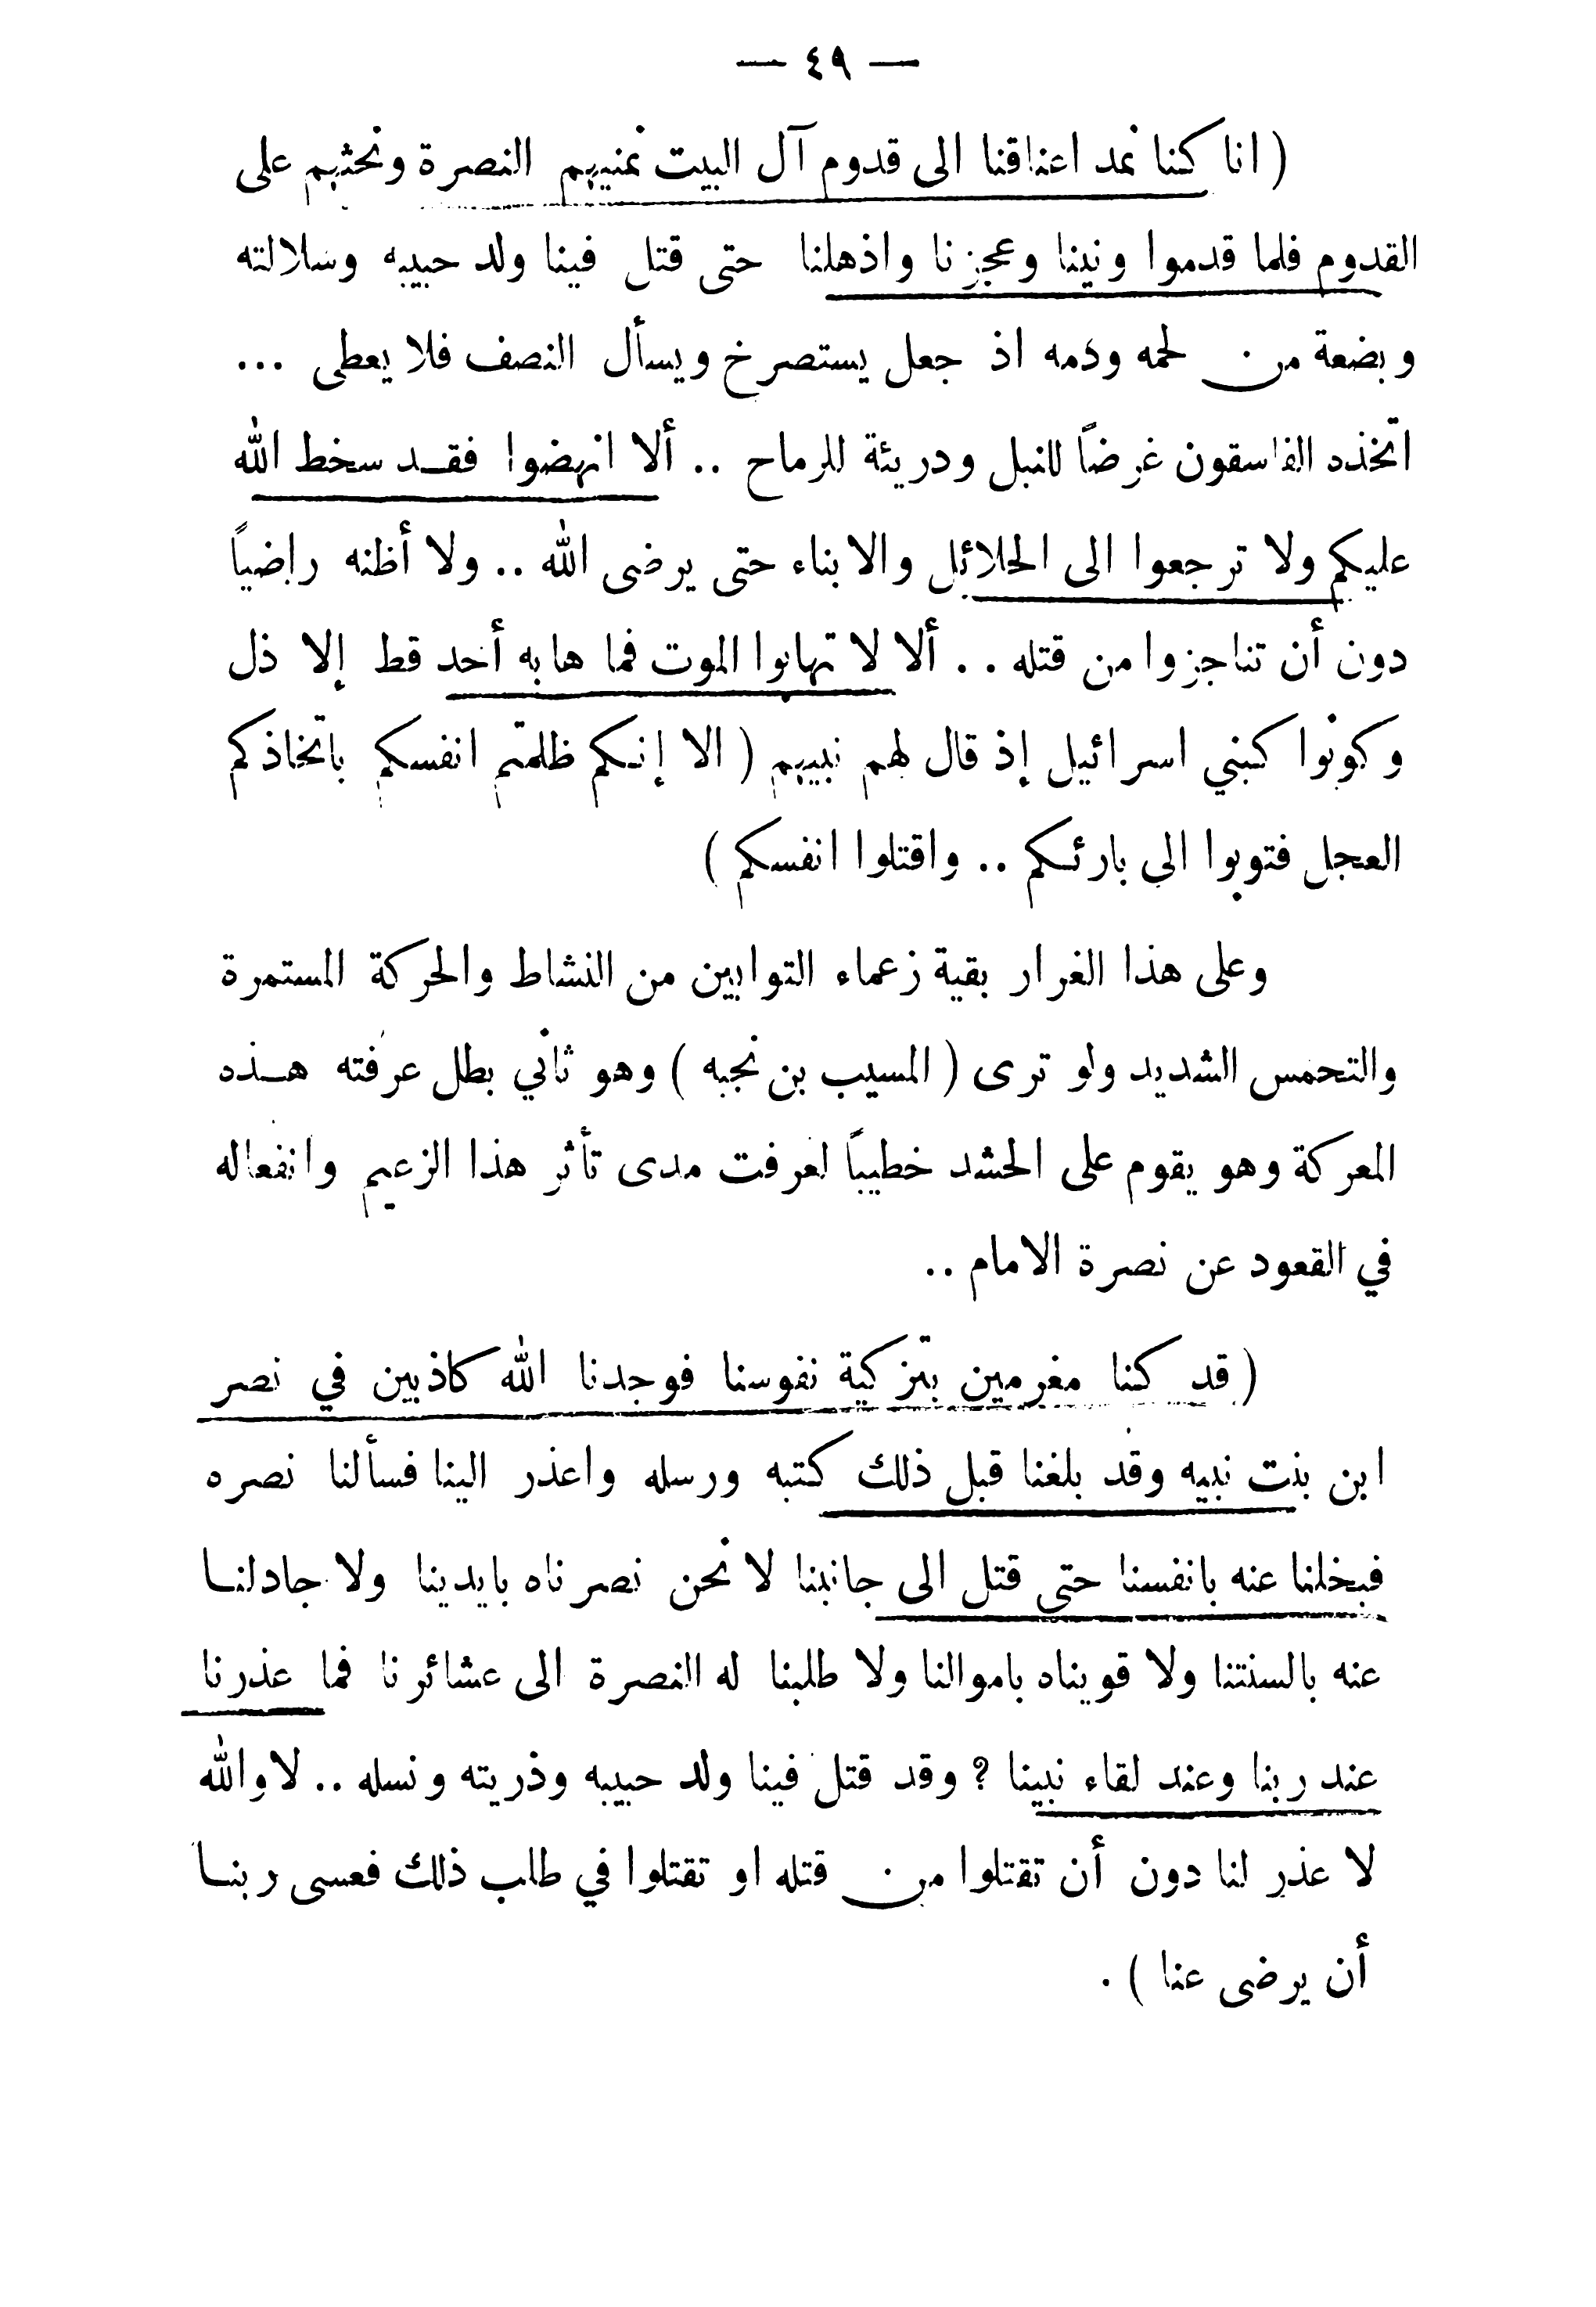 — ٤٩ —
( انا كنا نمد اعناقنا الى قدوم آل البيت نمنيهم النصرة ونحثهم على
القدوم فلما قدموا ونينا وعجزنا واذهلنا حتى قتل فينا ولد حبيبه وسلالته
وبضعة من لحمه ودمه اذ جعل يستصرخ ويسأل النصف فلا يعطى ...
اتخذه الفاسقون غرضاً للنبل ودريئة للرماح .. ألا انهضوا فقد سخط الله
عليكم ولا ترجعوا الى الحلائل والابناء حتى يرضى الله .. ولا أظنه راضياً
دون أن تناجزوا من قتله .. ألا لا تهابوا الموت فما هابه أحد قط إلا ذل
وكونوا كبني اسرائيل إذ قال لهم نبيهم ( الا إنكم ظلمتم انفسكم باتخاذكم
العجل فتوبوا الى بارئكم .. واقتلوا انفسكم )
وعلى هذا الغرار بقية زعماء التوابين من النشاط والحركة المستمرة
والتحمس الشديد ولو ترى ( المسيب بن نجبه ) وهو ثاني بطل عرفته هذه
المعركة وهو يقوم على الحشد خطيباً لعرفت مدى تأثر هذا الزعيم وانفعاله
في القعود عن نصرة الامام ..
( قد كنا مغرمين بتزكية نفوسنا فوجدنا الله كاذبين في نصر
ابن بنت نبيه وقد بلغنا قبل ذلك كتبه ورسله واعذر الينا فسألنا نصره
فبخلنا عنه بانفسنا حتى قتل الى جانبنا لا نحن نصرناه بايدينا ولا جادلنا
عنه بالسنتنا ولا قويناه باموالنا ولا طلبنا له النصرة الى عشائرنا فما عذرنا
عند ربنا وعند لقاء نبينا ؟ وقد قتل فينا ولد حبيبه وذريته ونسله .. لا والله
لا عذر لنا دون أن تقتلوا من قتله او تقتلوا في طلب ذلك فعسى ربنا
أن يرضى عنا ) .